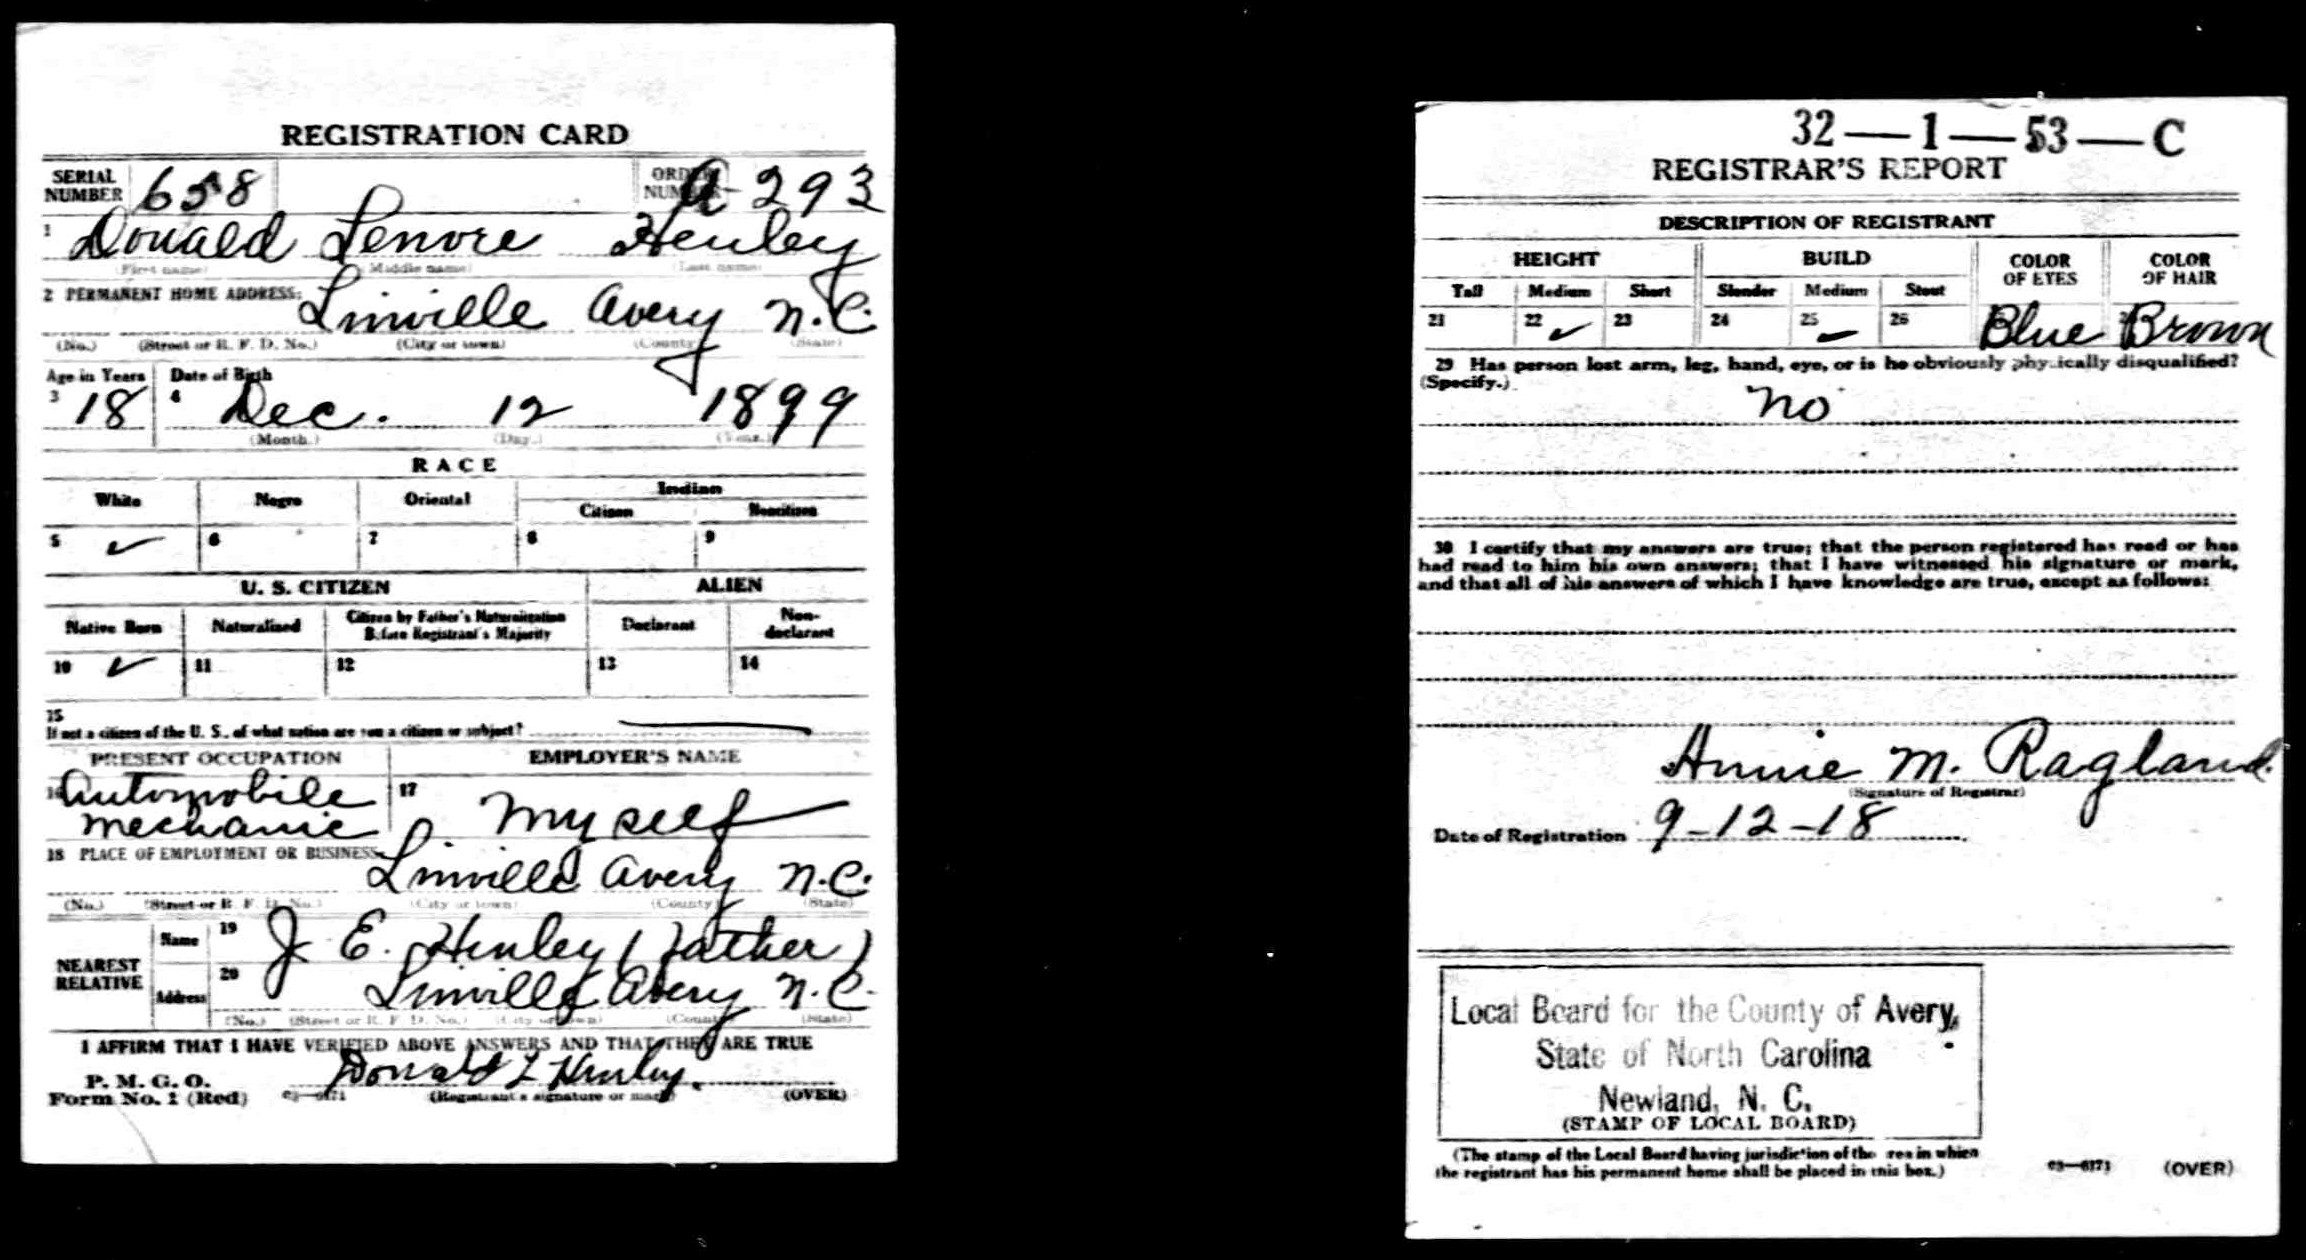 REGISTRATION CARD
SERIAL NUMBER 658 ORDER NUMBER A-293
1 Donald Lenore Henley
(First name) (Middle name) (Last name)
2 PERMANENT HOME ADDRESS:
Linville Avery N.C.
(No.) (Street or R. F. D. No.) (City or town) (County) (State)
Age in Years Date of Birth
3 18 4 Dec. 12 1899
(Month.) (Day.) (Year.)
RACE
White Negro Oriental Indian
Citizen Noncitizen
5 ✓ 6 7 8 9
U. S. CITIZEN ALIEN
Native Born Naturalized Citizen by Father's Naturalization Before Registrant's Majority Declarant Non-declarant
10 ✓ 11 12 13 14
15
If not a citizen of the U. S., of what nation are you a citizen or subject?
PRESENT OCCUPATION EMPLOYER'S NAME
16 Automobile mechanic 17 Myself
18 PLACE OF EMPLOYMENT OR BUSINESS:
Linville Avery N.C.
(No.) (Street or R. F. D. No.) (City or town) (County) (State)
NEAREST RELATIVE
Name 19 J. E. Henley (Father)
Address 20 Linville Avery N.C.
(No.) (Street or R. F. D. No.) (City or town) (County) (State)
I AFFIRM THAT I HAVE VERIFIED ABOVE ANSWERS AND THAT THEY ARE TRUE
P. M. G. O.
Form No. 1 (Red) 03—6171 Donald L Henley.
(Registrant's signature or mark) (OVER)
32—1—53—C
REGISTRAR'S REPORT
DESCRIPTION OF REGISTRANT
HEIGHT BUILD COLOR OF EYES COLOR OF HAIR
Tall Medium Short Slender Medium Stout
21 22 ✓ 23 24 25 ✓ 26 Blue Brown
29 Has person lost arm, leg, hand, eye, or is he obviously physically disqualified?
(Specify.)
no
30 I certify that my answers are true; that the person registered has read or has
had read to him his own answers; that I have witnessed his signature or mark,
and that all of his answers of which I have knowledge are true, except as follows:
Annie M. Ragland.
(Signature of Registrar)
Date of Registration 9-12-18
Local Board for the County of Avery,
State of North Carolina
Newland, N. C.
(STAMP OF LOCAL BOARD)
(The stamp of the Local Board having jurisdiction of the area in which
the registrant has his permanent home shall be placed in this box.)
03—6171 (OVER)